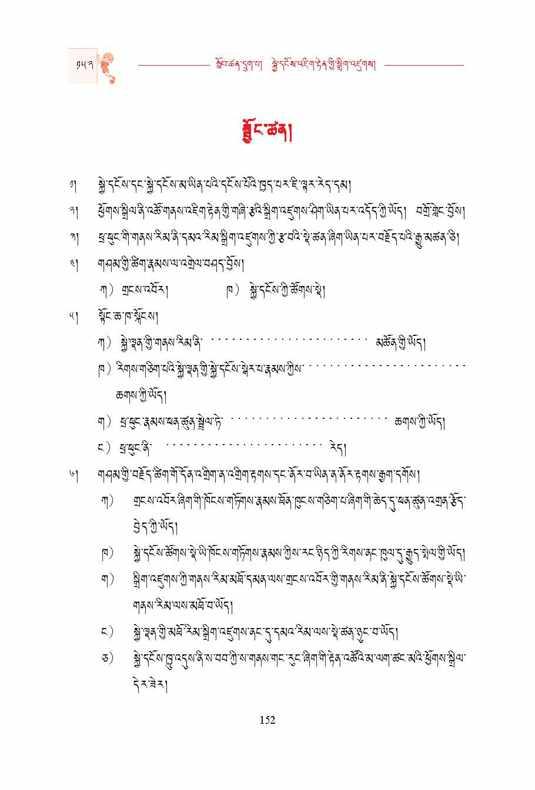 ༡༥༢ སློབ་ཚན་དྲུག་པ། སྐྱེ་དངོས་འཇིག་རྟེན་གྱི་སྒྲིག་འཛུགས།
སྦྱོང་ཚན།
༡། སྐྱེ་དངོས་དང་སྐྱེ་དངོས་མ་ཡིན་པའི་དངོས་པོའི་ཁྱད་པར་ཇི་ལྟར་རེད་དམ།
༢། ཕྱོགས་སྒྲིལ་ནི་འཚོ་གནས་འཇིག་རྟེན་གྱི་གཞི་རྩའི་སྒྲིག་འཛུགས་ཤིག་ཡིན་པར་འདོད་ཀྱི་ཡོད། བགྲོ་གླེང་བྱོས།
༣། ཕྲ་ཕུང་གི་གནས་རིམ་ནི་དམའ་རིམ་སྒྲིག་འཛུགས་ཀྱི་རྩ་བའི་སྡེ་ཚན་ཞིག་ཡིན་པར་བརྗོད་པའི་རྒྱུ་མཚན་ཅི།
༤། གཤམ་གྱི་ཚིག་རྣམས་ལ་འགྲེལ་བཤད་བྱོས།
ཀ) གྲངས་འབོར། ཁ) སྐྱེ་དངོས་ཀྱི་ཚོགས་སྡེ།
༥། སྟོང་ཆ་ཁ་སྐོངས།
ཀ) སྐྱེ་ལྡན་གྱི་གནས་རིམ་ནི་ ...................... མཚོན་གྱི་ཡོད།
ཁ) རིགས་གཅིག་པའི་སྐྱེ་ལྡན་གྱི་སྐྱེ་དངོས་སྒེར་པ་རྣམས་ཀྱིས་ ......................
ཆགས་ཀྱི་ཡོད།
ག) ཕྲ་ཕུང་རྣམས་ཕན་ཚུན་སྦྲེལ་ཏེ་ ...................... ཆགས་ཀྱི་ཡོད།
ང) ཕྲ་ཕུང་ནི་ ...................... རེད།
༦། གཤམ་གྱི་བརྗོད་ཚིག་གོ་དོན་འགྲིག་ན་འགྲིག་རྟགས་དང་ནོར་བ་ཡིན་ན་ནོར་རྟགས་རྒྱག་དགོས།
ཀ) གྲངས་འབོར་ཞིག་གི་ཁོངས་གཏོགས་རྣམས་ཐོན་ཁུངས་གཅིག་པ་ཞིག་གི་ཆེད་དུ་ཕན་ཚུན་འགྲན་རྩོད་
བྱེད་ཀྱི་ཡོད།
ཁ) སྐྱེ་དངོས་ཚོགས་སྡེ་ཡི་ཁོངས་གཏོགས་རྣམས་ཀྱིས་རང་ཉིད་ཀྱི་རིགས་ནང་ཁུལ་དུ་རྒྱུད་སྤེལ་གྱི་ཡོད།
ག) སྒྲིག་འཛུགས་ཀྱི་གནས་རིམ་མཐོ་དམན་ལས་གྲངས་འབོར་གྱི་གནས་རིམ་ནི་སྐྱེ་དངོས་ཚོགས་སྡེ་ཡི་
གནས་རིམ་ལས་མཐོ་བ་ཡོད།
ང) སྐྱེ་ལྡན་གྱི་མཐོ་རིམ་སྒྲིག་འཛུགས་ནང་དུ་དམའ་རིམ་ལས་སྡེ་ཚན་ཉུང་བ་ཡོད།
ཅ) སྐྱེ་དངོས་ཁྲུ་འདུས་ནི་ས་བབ་ཀྱི་ས་གནས་གང་རུང་ཞིག་གི་རྟེན་འཚོའི་མ་ལག་ཚང་མའི་ཕྱོགས་སྒྲིལ་
དེར་ཟེར།
152